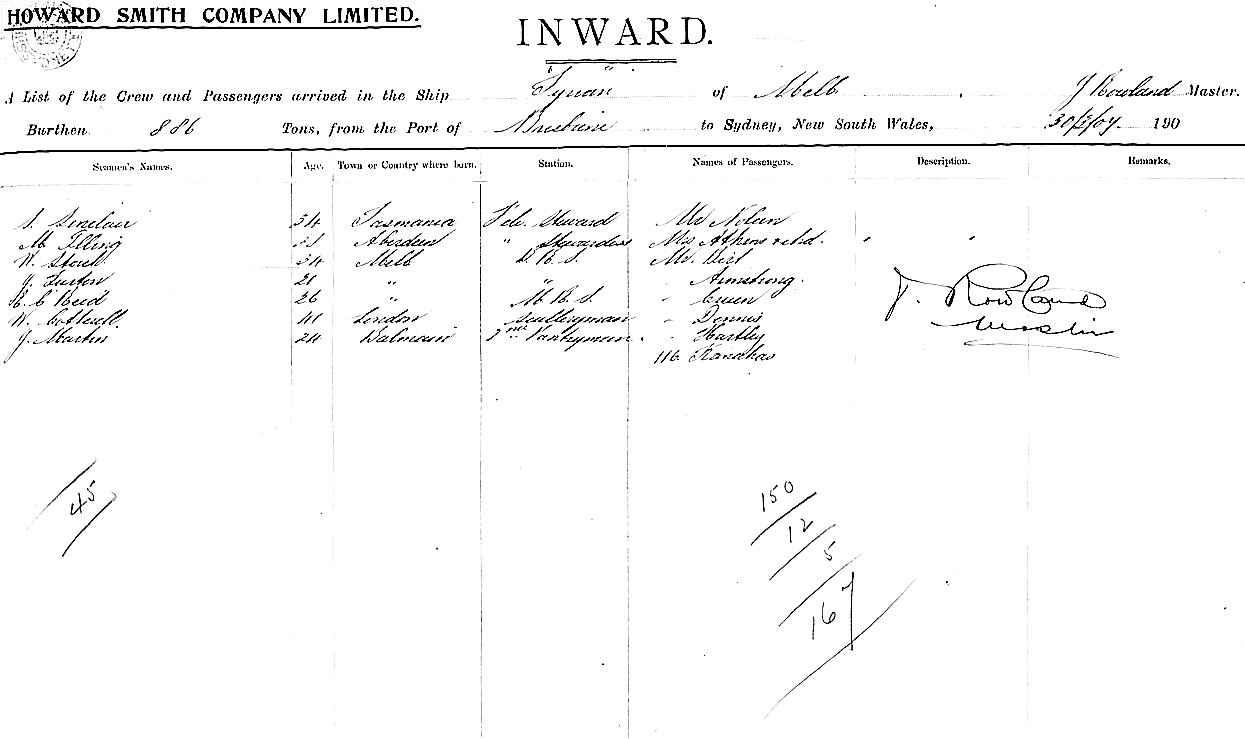 HOWARD SMITH COMPANY LIMITED.
INWARD.
A List of the Crew and Passengers arrived in the Ship "Tyrian" of Melb J Rowland Master.
Burthen 886 Tons, from the Port of Brisbane to Sydney, New South Wales, 30/3/07 190
Seamen's Names. Age. Town or Country where born. Station. Names of Passengers. Description. Remarks.
S. Sinclair 34 Tasmania Steward Mr Nolan
M Illing Aberdeen " Stewardess Mrs Athens
W. 34 Melb Mr.
J. 21 " " " Armstrong.
Reid 26 " M. R. S. " Green
W. Cotterell 41 London Sculleryman " Dennis
J. Martin 24 Balmain Pantryman " Hartley
116 Kanakas
J. Rowland
Master
45
150
12
5
167